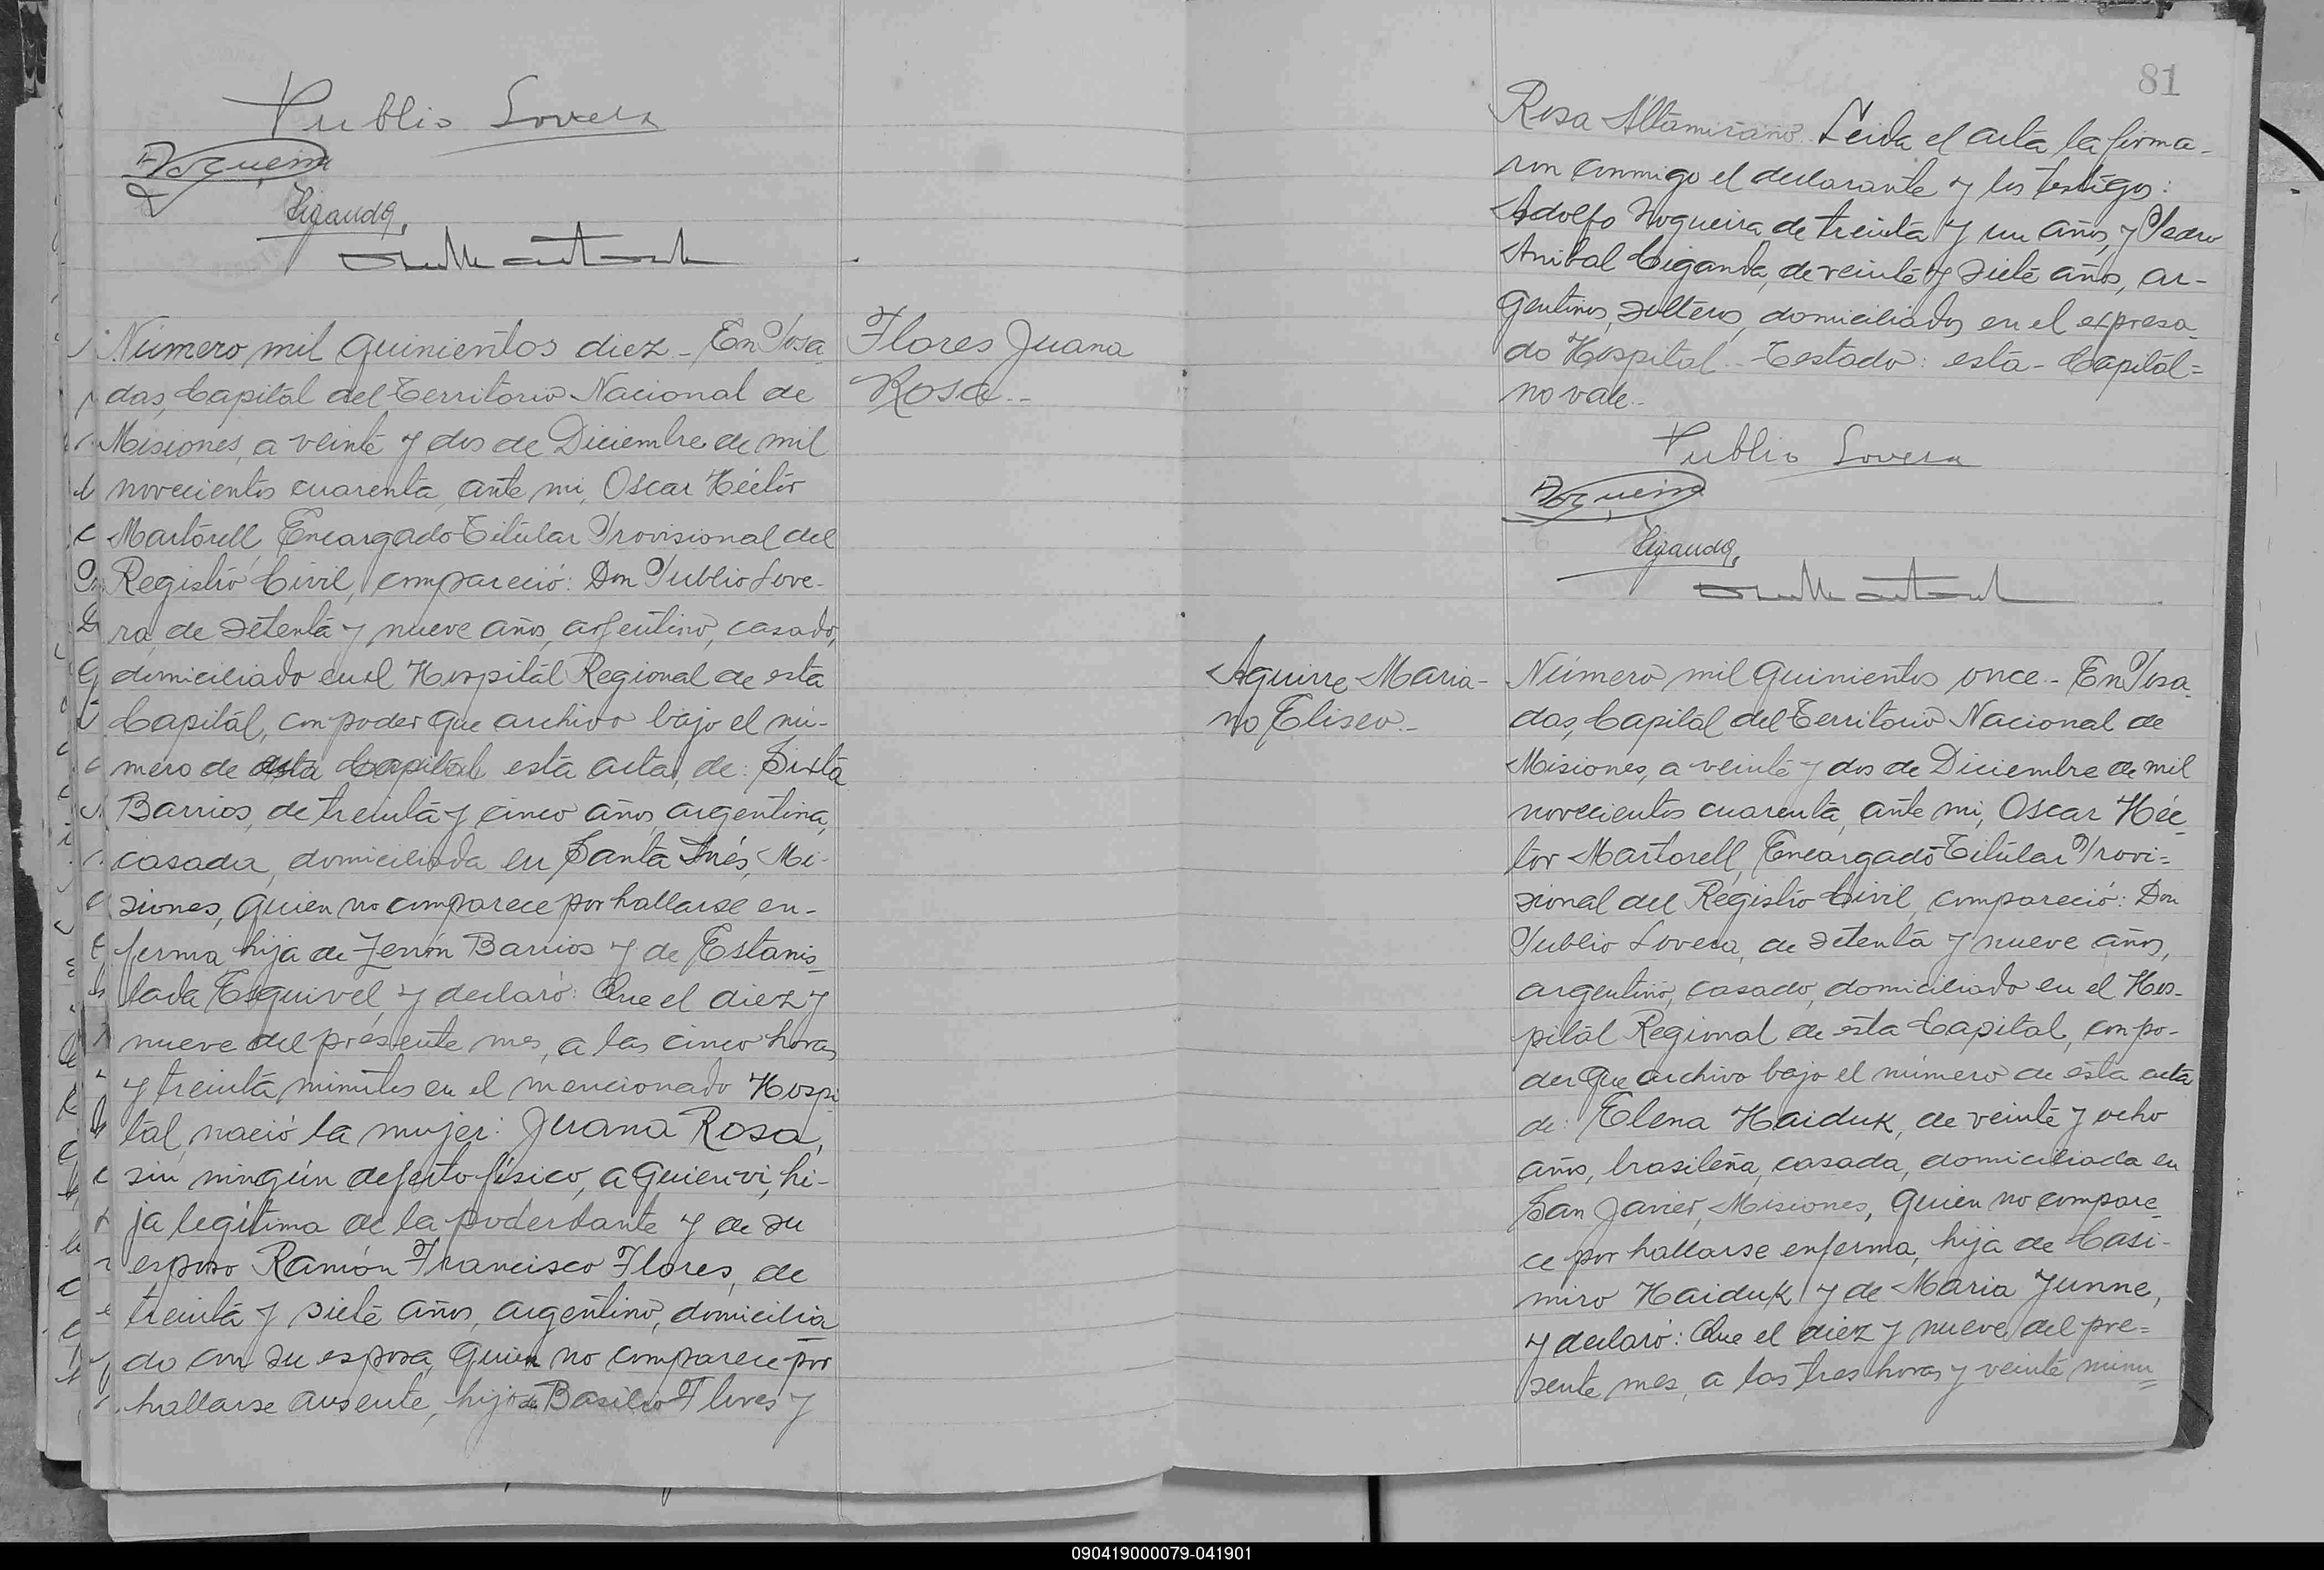 Publio Lovera
ANogueira
Liganda
Número mil quinientos diez - En Posa
das, Capital del Territorio Nacional de
Misiones, a veinte y dos de Diciembre de mil
novecientos cuarenta, ante mi, Oscar Héctor
Martorell, Encargado Titular Provisional del
Registro Civil, compareció: Don Publio Love-
ra, de setenta y nueve años, argentino, casado,
domiciliado en el Hospital Regional de esta
Capital, con poder que archivo bajo el nú-
mero de esta Capital esta acta, de: Sixta
Barrios, de treinta y cinco años, argentina,
casada, domiciliada en Santa Inés, Mi-
siones, quien no comparece por hallarse en-
ferma, hija de Zenón Barrios y de Estanis
lada Esquivel, y declaró: Que el diez y
nueve del presente mes, a las cinco horas
y treinta minutos en el mencionado Hospi
tal, nació la mujer: Juana Rosa,
sin ningún defecto físico, a quien vi, hi-
ja legítima de la poderdante y de su
esposo Ramón Francisco Flores, de
treinta y siete años, argentino, domicilia
do con su esposa, quien no comparece por
hallarse ausente, hijo de Basilio Flores y
Flores Juana
Rosa.-
81
Rosa Altamirano. Leida el acta la firma-
ron conmigo el declarante y los testigos:
Adolfo Nogueira de treinta y un años, y Pedro
Anibal Ciganda, de veinte y siete años, ar-
gentinos, solteros, domiciliados en el expresa
do Hospital.- Testado: esta - Capital=
no vale.-
Publio Lovera
ANogueira
Liganda
Aguirre Maria-
no Eliseo.-
Número mil quinientos once.- En Posa
das, Capital del Territorio Nacional de
Misiones, a veinte y dos de Diciembre de mil
novecientos cuarenta, ante mi, Oscar Héc
tor Martorell, Encargado Titular Provi=
sional del Registro Civil, compareció: Don
Publio Lovera, de setenta y nueve años,
argentino, casado, domiciliado en el Hos-
pital Regional de esta Capital, con po-
der que archivo bajo el número de esta acta
de: Elena Haiduk, de veinte y ocho
años, brasileña, casada, domiciliada en
San Javier, Misiones, quien no compare
ce por hallarse enferma, hija de Casi-
miro Haiduk y de Maria Junne,
y declaró: Que el diez y nueve del pre=
sente mes, a las tres horas y veinte minu
090419000079-041901